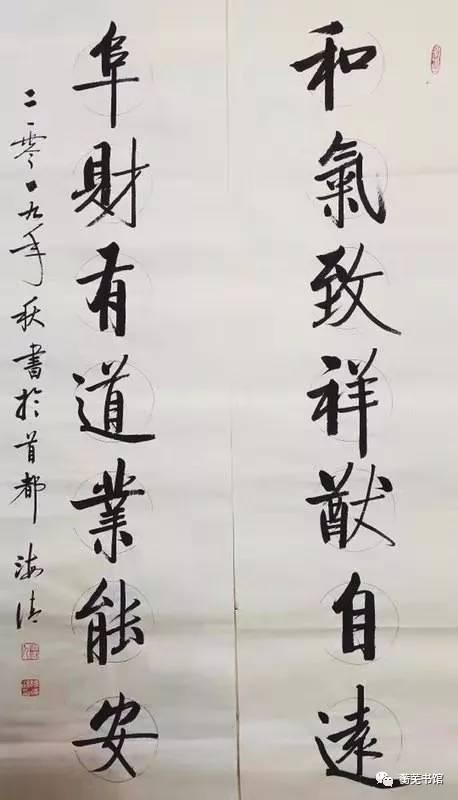 和氣致祥猷自遠
阜財有道業能安
二〇一九年秋書於首都 海清
蘅芜书馆